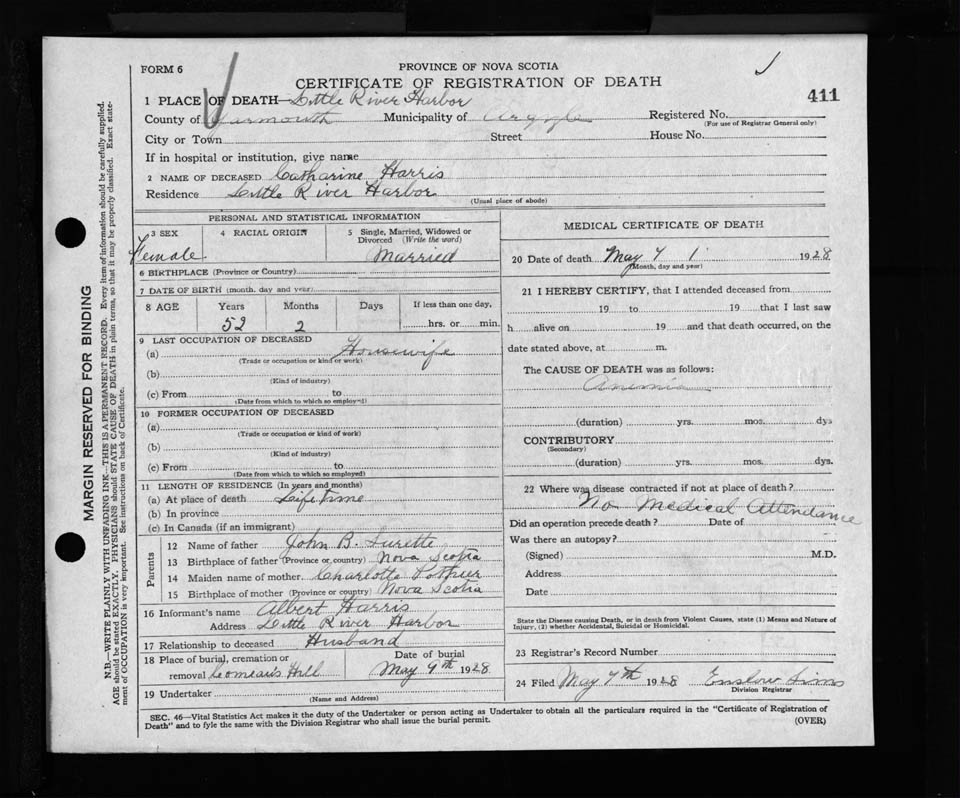 PROVINCE OF NOVA SCOTIA
FORM 6
CERTIFICATE OF REGISTRATION OF DEATH
411
1 PLACE OF DEATH—Little River Harbor
County of Yarmouth Municipality of Argyle Registered No.
(For use of Registrar General only)
City or Town Street House No.
If in hospital or institution, give name
2 NAME OF DECEASED Catharine Harris
Residence Little River Harbor
(Usual place of abode)
MARGIN RESERVED FOR BINDING
N.B.—WRITE PLAINLY WITH UNFADING INK—THIS IS A PERMANENT RECORD. Every item of information should be carefully supplied.
AGE should be stated EXACTLY. PHYSICIANS should STATE CAUSE OF DEATH in plain terms, so that it may be properly classified. Exact state-
ment of OCCUPATION is very important. See instructions on back of Certificate.
PERSONAL AND STATISTICAL INFORMATION
3 SEX
Female
4 RACIAL ORIGIN
5 Single, Married, Widowed or
Divorced (Write the word)
Married
6 BIRTHPLACE (Province or Country)
7 DATE OF BIRTH (month, day and year)
8 AGE Years Months Days If less than one day,
52 2 hrs. or min.
9 LAST OCCUPATION OF DECEASED
(a) Housewife
(Trade or occupation or kind of work)
(b)
(Kind of industry)
(c) From to
(Date from which to which so employed)
10 FORMER OCCUPATION OF DECEASED
(a)
(Trade or occupation or kind of work)
(b)
(Kind of industry)
(c) From to
(Date from which to which so employed)
11 LENGTH OF RESIDENCE (In years and months)
(a) At place of death Lifetime
(b) In province
(c) In Canada (if an immigrant)
Parents
12 Name of father John B. Surette
13 Birthplace of father (Province or country) Nova Scotia
14 Maiden name of mother Charlotte Pothier
15 Birthplace of mother (Province or country) Nova Scotia
16 Informant's name Albert Harris
Address Little River Harbor
17 Relationship to deceased Husband
18 Place of burial, cremation or Date of burial
removal Comeau's Hill May 9th 1928
19 Undertaker
(Name and Address)
MEDICAL CERTIFICATE OF DEATH
20 Date of death May 7 1928
(Month, day and year)
21 I HEREBY CERTIFY, that I attended deceased from
19 to 19 that I last saw
h alive on 19 and that death occurred, on the
date stated above, at m.
The CAUSE OF DEATH was as follows:
Anemia
(duration) yrs. mos. dys
CONTRIBUTORY
(Secondary)
(duration) yrs. mos. dys.
22 Where was disease contracted if not at place of death?
No Medical Attendance
Did an operation precede death? Date of
Was there an autopsy?
(Signed) M.D.
Address
Date
State the Disease causing Death, or in death from Violent Causes, state (1) Means and Nature of
Injury, (2) whether Accidental, Suicidal or Homicidal.
23 Registrar's Record Number
24 Filed May 7th 1928 Enslow Sims
Division Registrar
SEC. 46—Vital Statistics Act makes it the duty of the Undertaker or person acting as Undertaker to obtain all the particulars required in the "Certificate of Registration of
Death" and to fyle the same with the Division Registrar who shall issue the burial permit.
(OVER)